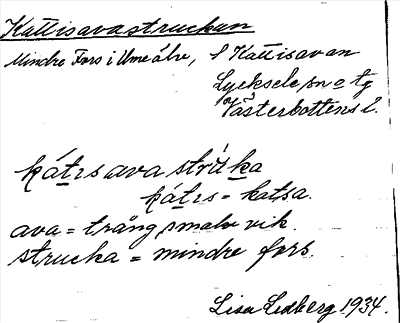 Kattisavastruckan
Mindre Fors i Umeälv, S Kattisavan
Lycksele sn o tg
Västerbottens l.
kát̲ısava strúk̲a
kát̲ıs = katsa.
ava = trång smal vik.
strucka = mindre fors.
Lisa Lidberg 1934.